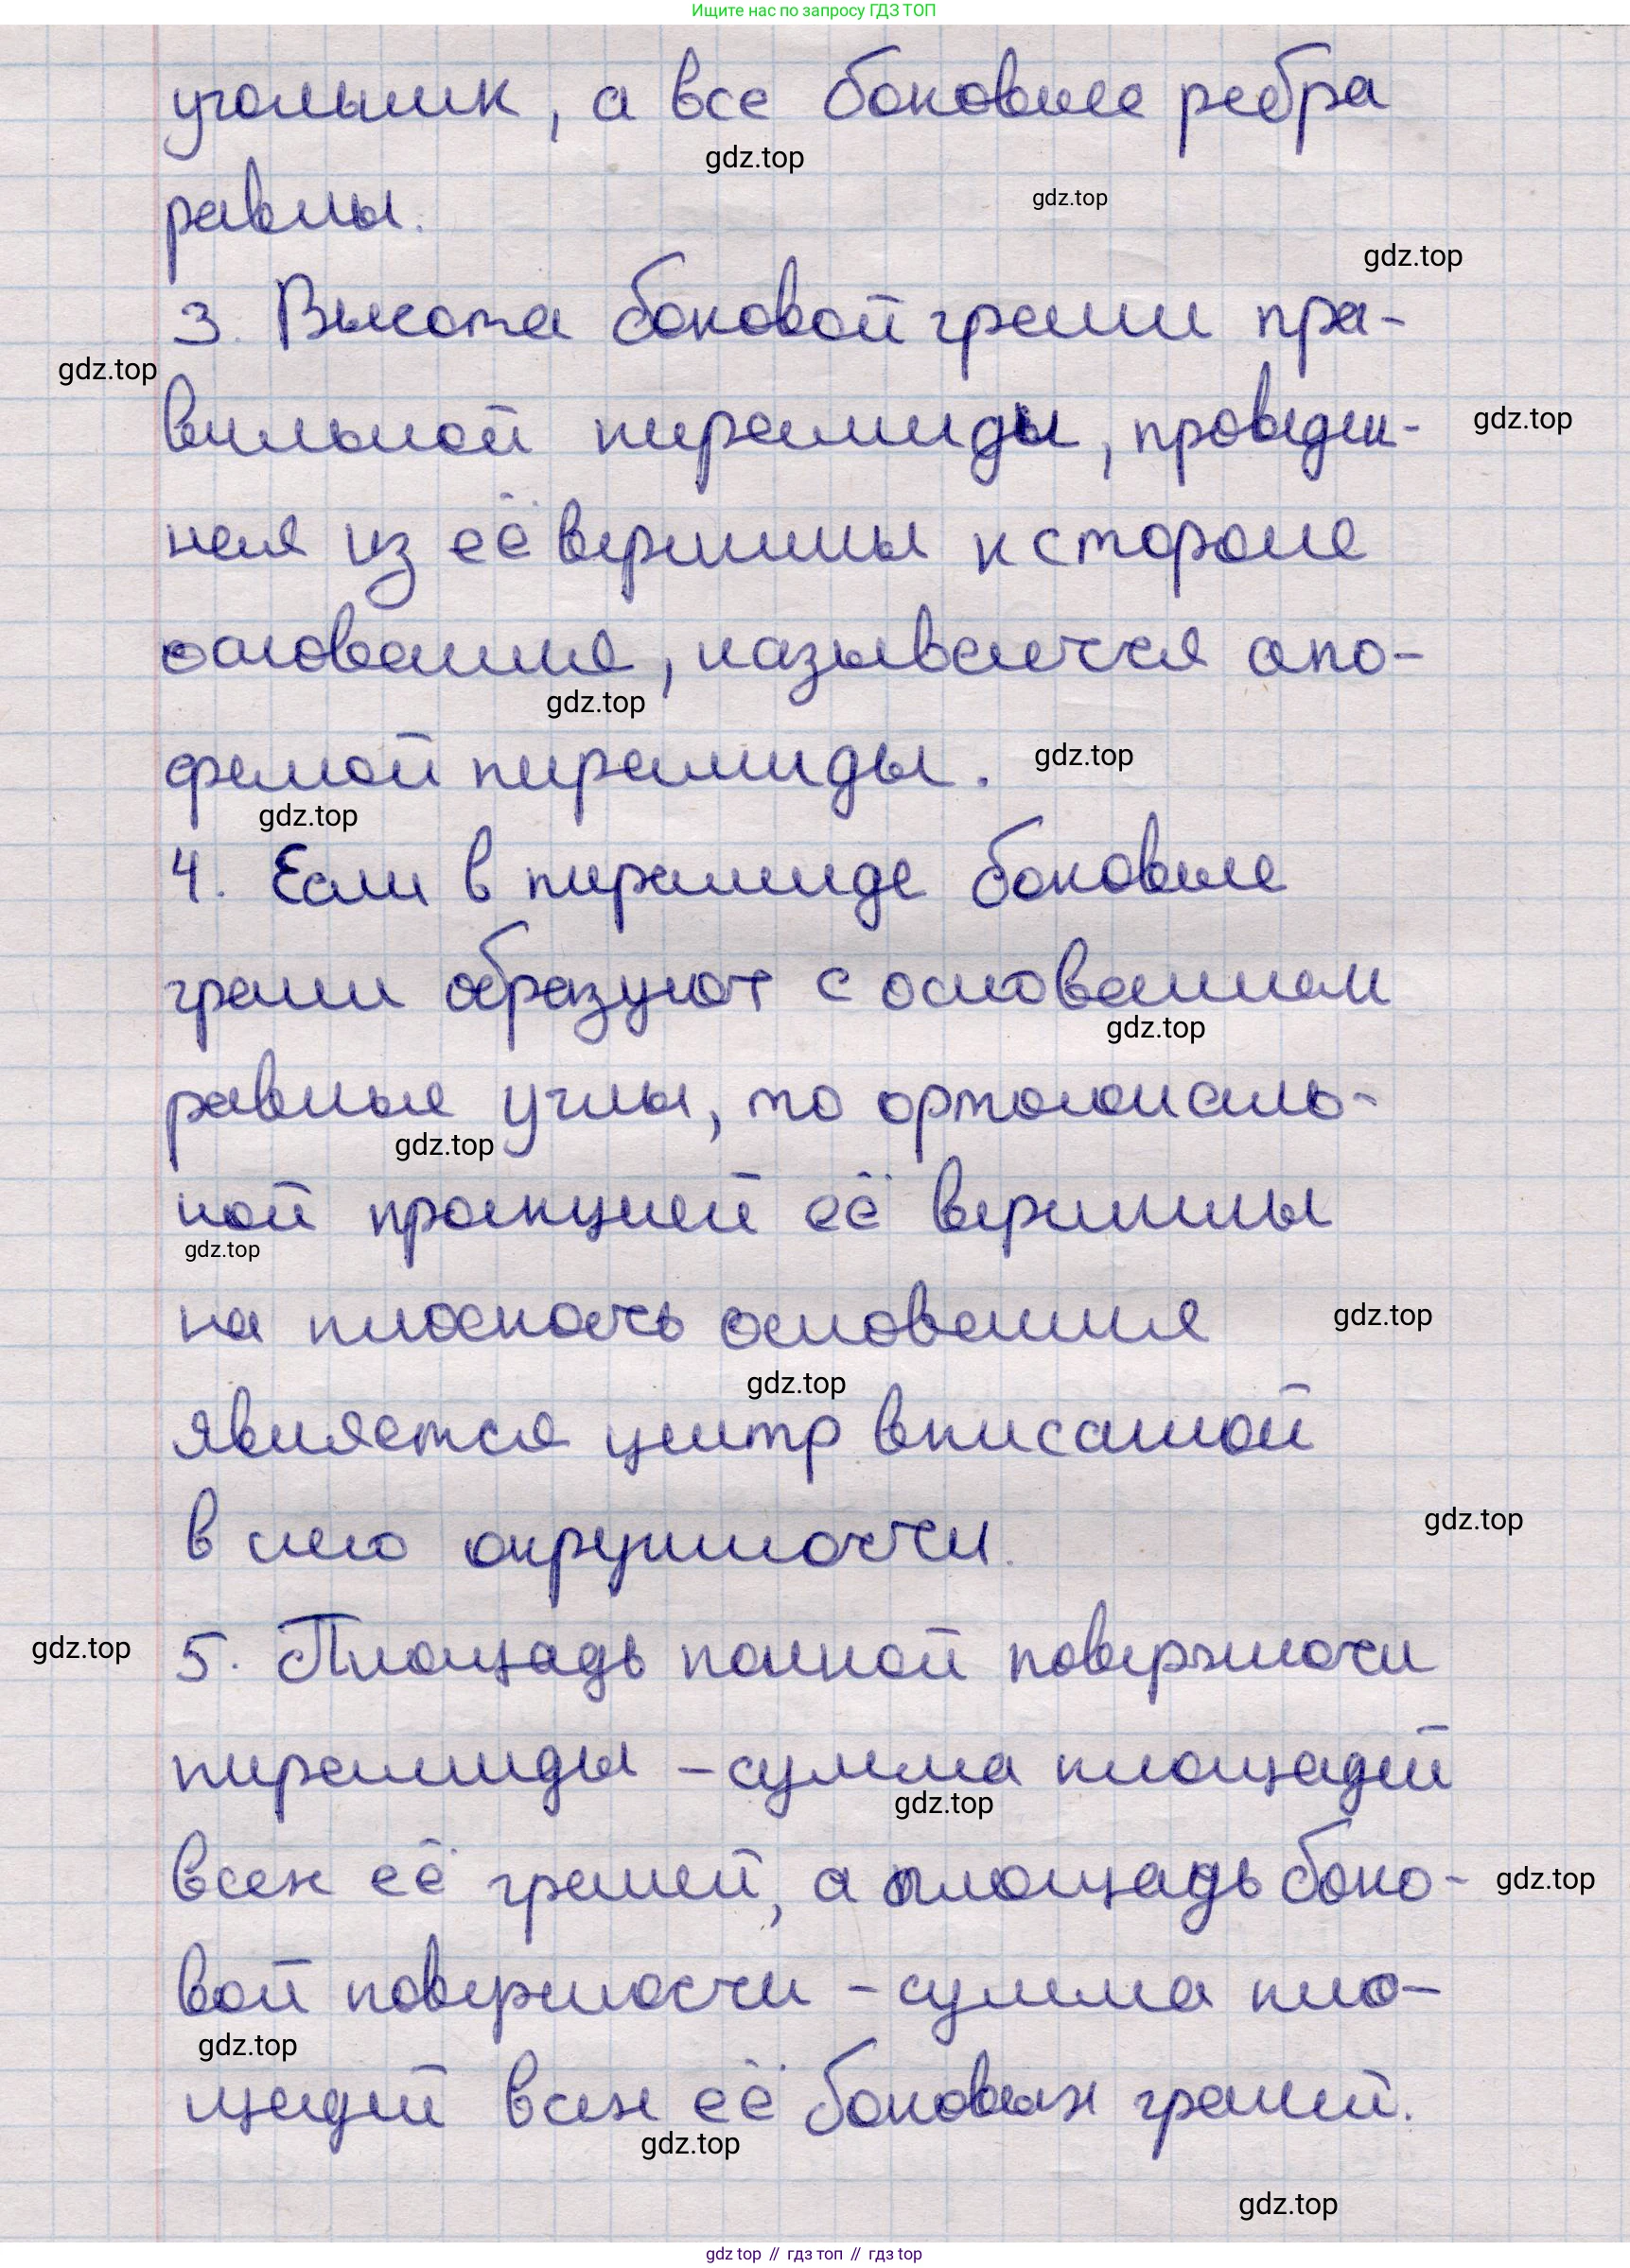 Ищите нас по запросу ГДЗ ТОП
угольник, а все боковые ребра
gdz.top
gdz.top
равны.
gdz.top
3. Высота боковой грани пра-
gdz.top
вильной пирамиды, проведен-
gdz.top
ная из её вершины к стороне
основания, называется апо-
gdz.top
фемой пирамиды.
gdz.top
gdz.top
4. Если в пирамиде боковые
грани образуют с основанием
gdz.top
равные углы, то ортогональ-
gdz.top
ной проекцией её вершины
gdz.top
на плоскость основания
gdz.top
gdz.top
является центр вписанной
в него окружности.
gdz.top
5. Площадь полной поверхности
gdz.top
пирамиды - сумма площадей
gdz.top
всех её граней, а площадь боко-
gdz.top
вой поверхности - сумма пло-
gdz.top
щадей всех её боковых граней.
gdz.top
gdz.top
gdz top // гдз топ // гдз top